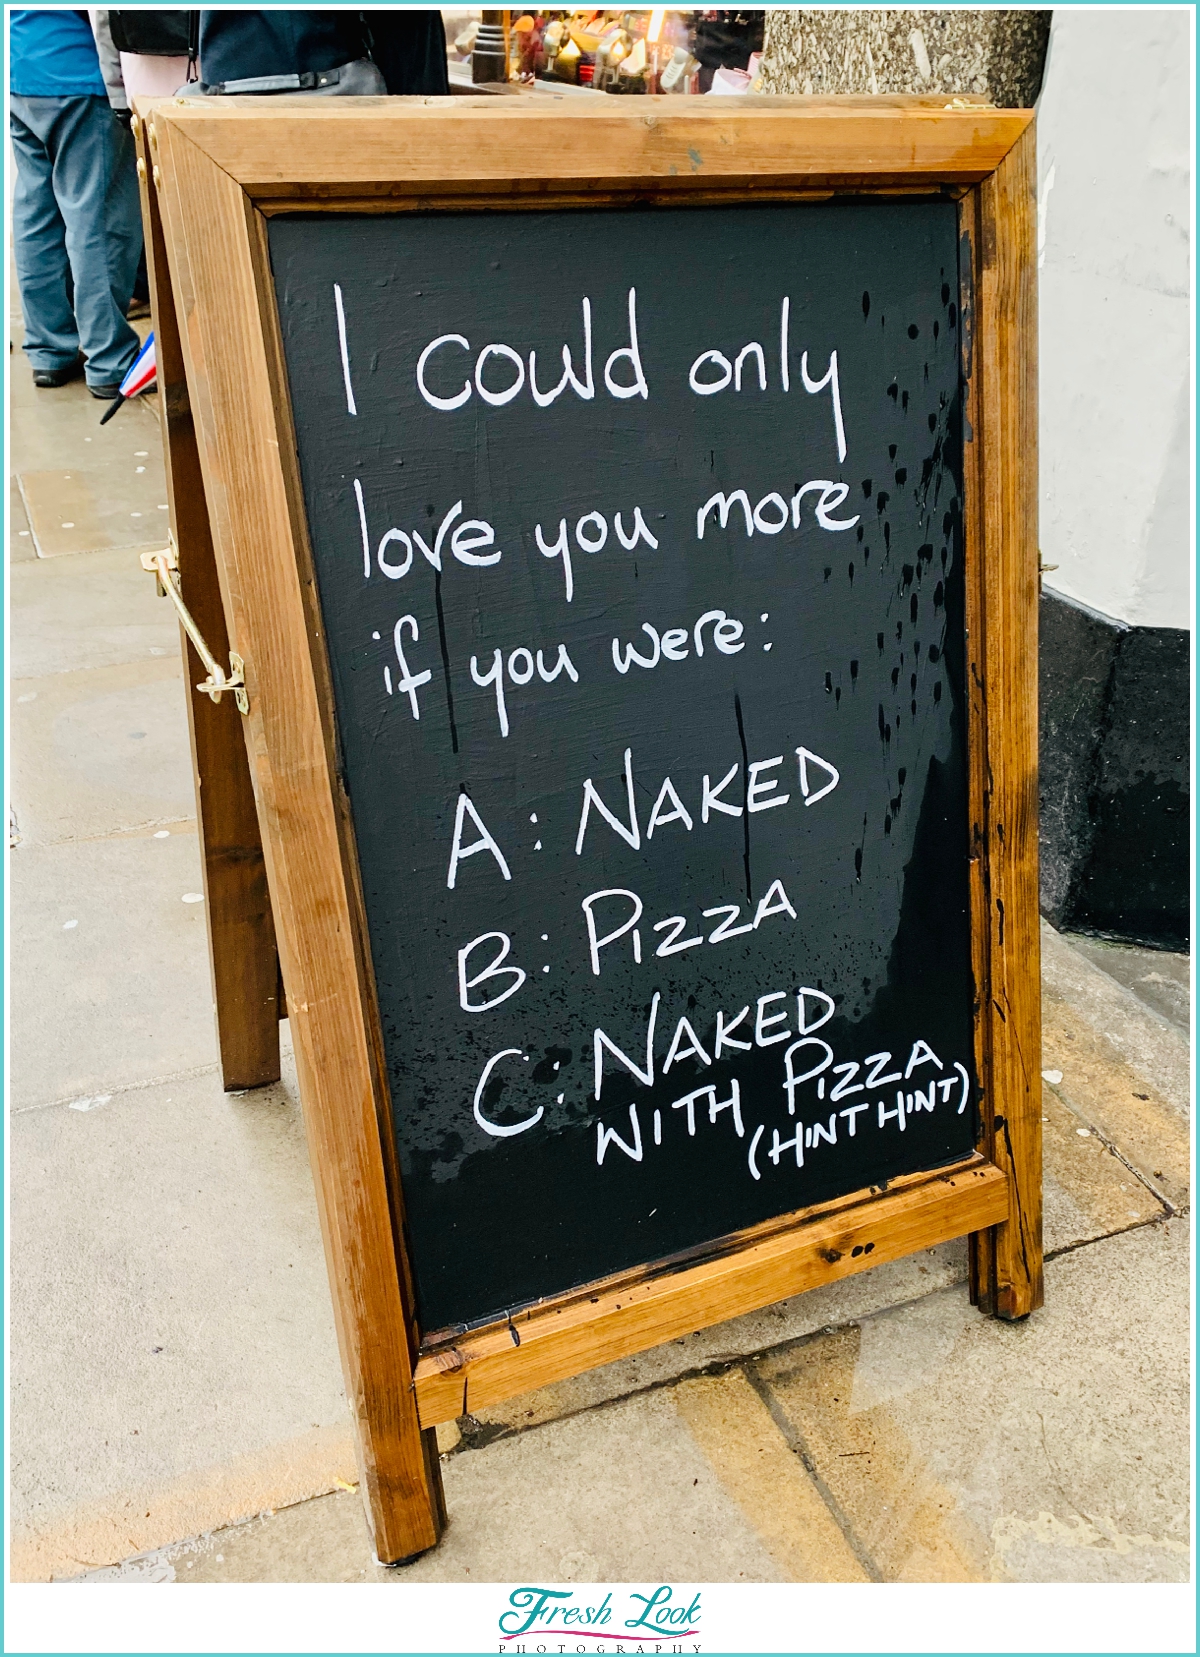 I could only
love you more
if you were:
A: NAKED
B: PIZZA
C: NAKED
WITH PIZZA
(HINT HINT)
Fresh Look
PHOTOGRAPHY